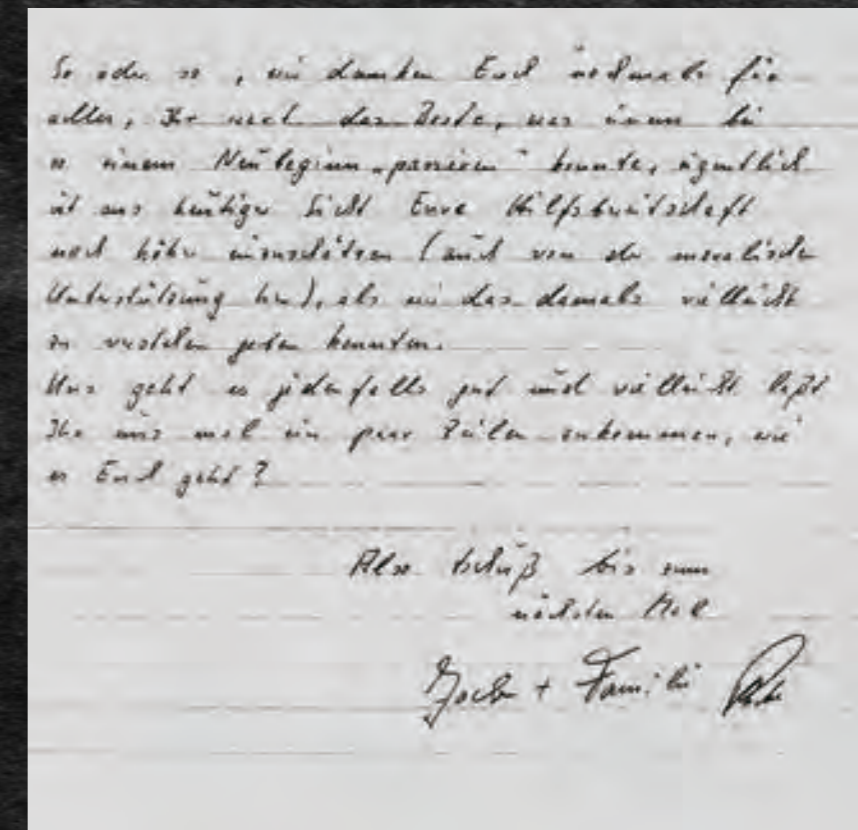 So oder so, wir danken Euch nochmals für
alles, Ihr wart das Beste, was einem bei
so einem Neubeginn „passieren" konnte, eigentlich
ist aus heutiger Sicht Eure Hilfsbereitschaft
noch höher einzuschätzen (auch von der moralischen
Unterstützung her), als wir das damals vielleicht
zu verstehen geben konnten.
Uns geht es jedenfalls gut und vielleicht laßt
Ihr uns mal ein paar Zeilen zukommen, wie
es Euch geht?
Also tschüß bis zum
nächsten Mal
+ Familie